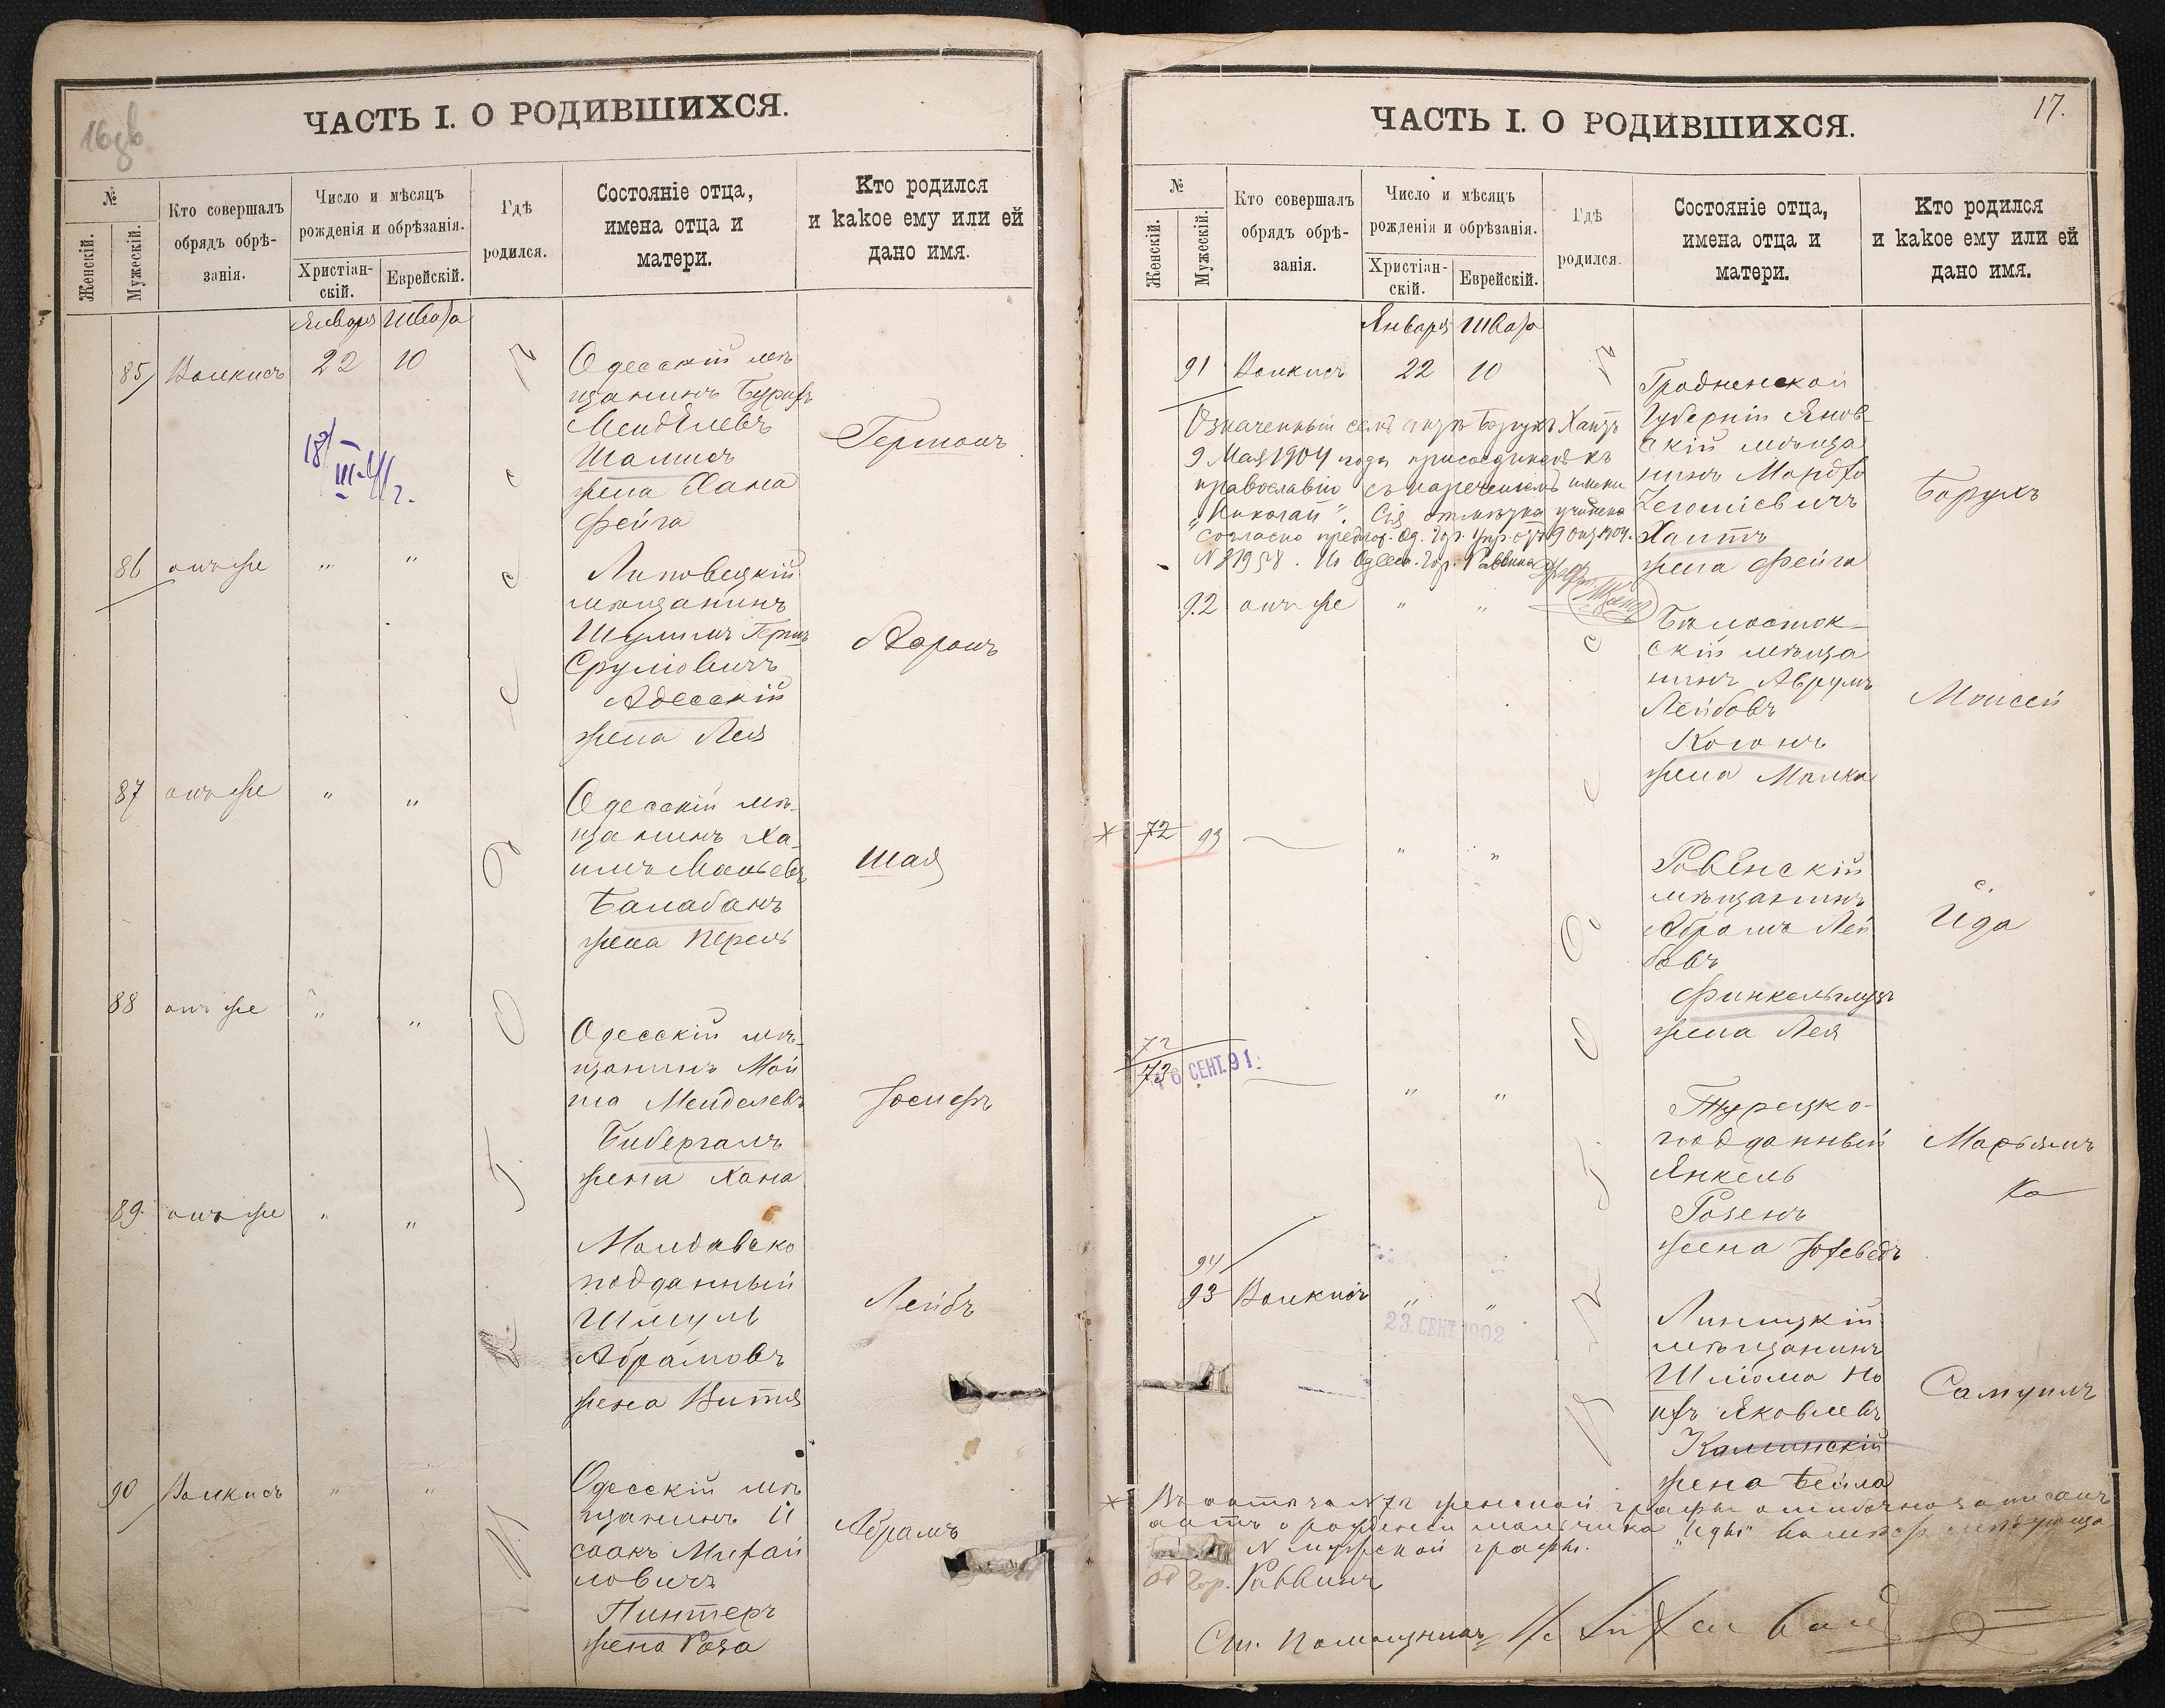 16об
ЧАСТЬ I. О РОДИВШИХСЯ.
№
Женскій.
Мужескій.
Кто совершалъ
обрядъ обрѣ-
занія.
Число и мѣсяцъ
рожденія и обрѣзанія.
Христіан-
скій.
Еврейскій.
Гдѣ
родился.
Состояніе отца,
имена отца и
матери.
Кто родился
и какое ему или ей
дано имя.
Января Швата
85 Волкисъ 22 10
Одесскій мѣ
щанинъ Бурихъ
Менделевъ
жена Хана
Фейга
Германъ
86 онъ же " "
Липовецкій
мѣщанинъ
Шулимъ Герш
Сруліовичъ
Адесскій
жена Лея
Аронъ
87 онъ же " "
Одесскій мѣ-
щанинъ Ха-
имъ
Балабанъ
жена Перель
Шая
88 онъ же " "
Одесскій мѣ-
щанинъ Мой
ша Менделевъ
Бибергалъ
жена Хана
Іосифъ
89 онъ же " "
Молдавско
подданный
Шмуль
Абрамовъ
жена Витя
Лейбъ
90 Волкисъ " "
Одесскій мѣ
щанинъ И
саакъ Михай
ловичъ
Пинтеръ
жена Роза
Абрамъ
17.
ЧАСТЬ I. О РОДИВШИХСЯ.
№
Женскій.
Мужескій.
Кто совершалъ
обрядъ обрѣ-
занія.
Число и мѣсяцъ
рожденія и обрѣзанія.
Христіан-
скій.
Еврейскій.
Гдѣ
родился.
Состояніе отца,
имена отца и
матери.
Кто родился
и какое ему или ей
дано имя.
Января Швата
91 Волкисъ 22 10
Гродненской
Губерніи Янов
скій мѣща
нинъ Мордко
жена Фейга
Борухъ
Означенный Борухъ
9 Мая 1904 года присоединенъ къ
православію съ нареченіемъ имени
„Николай". Сія отмѣтка учинена
согласно Од. Гор. Упр.
Одесс. Гор. Раввинъ
92 онъ же " "
Бѣлосток-
скій мѣща
нинъ Аврумъ
Лейбовъ
Коганъ
жена Малка
Моисей
* 72 93 — " "
Ровенскій
мѣщанинъ
Абрамъ Лей
бовъ
жена Лея
Ида
72
73 — " "
6 СЕНТ. 91.
Турецко-
подданный
Янкель
Розенъ
жена Іохеведъ
Марьям
ка
94
93 Волкисъ " "
23 СЕНТ 1902
мѣщанинъ
Шліома Но
ихъ Яковлевъ
Калинскій
жена Бейла
Самуилъ
* Въ актѣ за № 72 женской графы ошибочно записанъ
актъ о рожденіи мальчика „Иды"
№ мужской графы.
Од. Гор. Раввинъ
См. Помощникъ